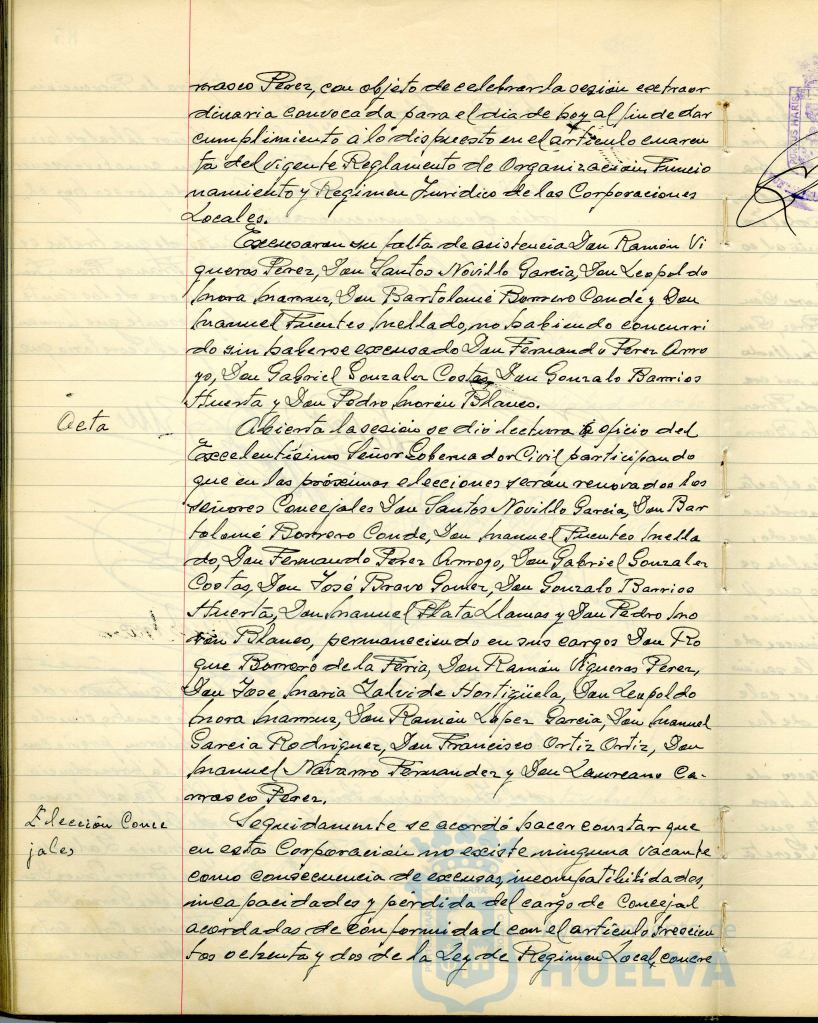 rrasco Perez, con objeto de celebrar la sesión extraor
dinaria convocada para el dia de hoy al fin de dar
cumplimiento a lo dispuesto en el artículo cuaren
ta del vigente Reglamento de Organización, Funcio
namiento y Regimen Juridico de las Corporaciones
Locales.
Excusaron su falta de asistencia Don Ramón Vi
gueras Perez, Don Santos Novillo Garcia, Don Leopoldo
Mora Marruz, Don Bartolomé Borrero Condé y Don
Manuel Fuentes Mellado, no habiendo concurri
do sin haberse excusado Don Fernando Perez Arro
yo, Don Gabriel Gonzalez Costas, Don Gonzalo Barrios
Huerta y Don Pedro Morón Blanco.
Acta
Abierta la sesión se dió lectura a oficio del
Excelentísimo Señor Gobernador Civil participando
que en las próximas elecciones serán renovados los
señores Concejales Don Santos Novillo Garcia, Don Bar
tolomé Borrero Conde, Don Manuel Fuentes Mella
do, Don Fernando Perez Arroyo, Don Gabriel Gonzalez
Costas, Don José Bravo Gomez, Don Gonzalo Barrios
Huerta, Don Manuel Plata Llamas y Don Pedro Mo
rón Blanco, permaneciendo en sus cargos Don Ro
que Borrero de la Feria, Don Ramón Vigueras Perez,
Don Jose Maria Zalvide Hortigüela, Don Leopoldo
Mora Marruz, Don Ramón Lopez Garcia, Don Manuel
Garcia Rodriguez, Don Francisco Ortiz Ortiz, Don
Manuel Navarro Fernandez y Don Laureano Ca-
rrasco Perez.
Elección Conce
jales
Seguidamente se acordó hacer constar que
en esta Corporación no existe ninguna vacante
como consecuencia de excusas, incompatibilidades,
incapacidades y pérdida del cargo de Concejal
acordadas de conformidad con el artículo trescien
tos ochenta y dos de la Ley de Regimen Local, concre
HUELVA